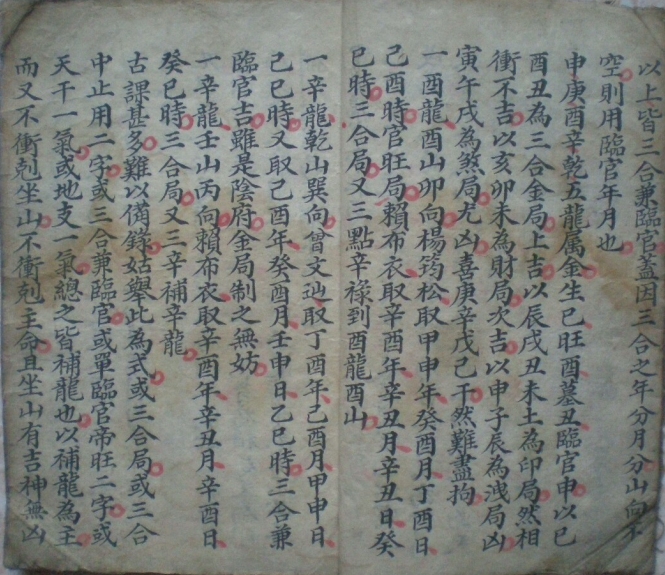 以上皆三合兼臨官蓋因三合之年分月分山向不
空則用臨官年月也
申庚酉辛乾五龍属金生巳旺酉墓丑臨官申以巳
酉丑為三合金局上吉以辰戌丑未土為印局然相
衝不吉以亥卯未為財局次吉以申子辰為洩局凶
寅午戌為煞局尤凶喜庚辛戊己干然難盡拘
一酉龍酉山卯向楊筠松取甲申年癸酉月丁酉日
己酉時官旺局賴布衣取辛酉年辛丑月辛丑日癸
巳時三合局又三點辛祿到酉龍酉山
一辛龍乾山巽向曾文辿取丁酉年己酉月甲申日
己巳時又取己酉年癸酉月壬申日乙巳時三合兼
臨官吉雖是陰府金局制之無妨
一辛龍壬山丙向賴布衣取辛酉年辛丑月辛酉日
癸巳時三合局又三辛補辛龍
古課甚多難以備錄姑舉此為式或三合局或三合
中止用二字或三合兼臨官或單臨官帝旺二字或
天干一氣或地支一氣總之皆補龍也以補龍為主
而又不衝剋坐山不衝剋主命且坐山有吉神無凶